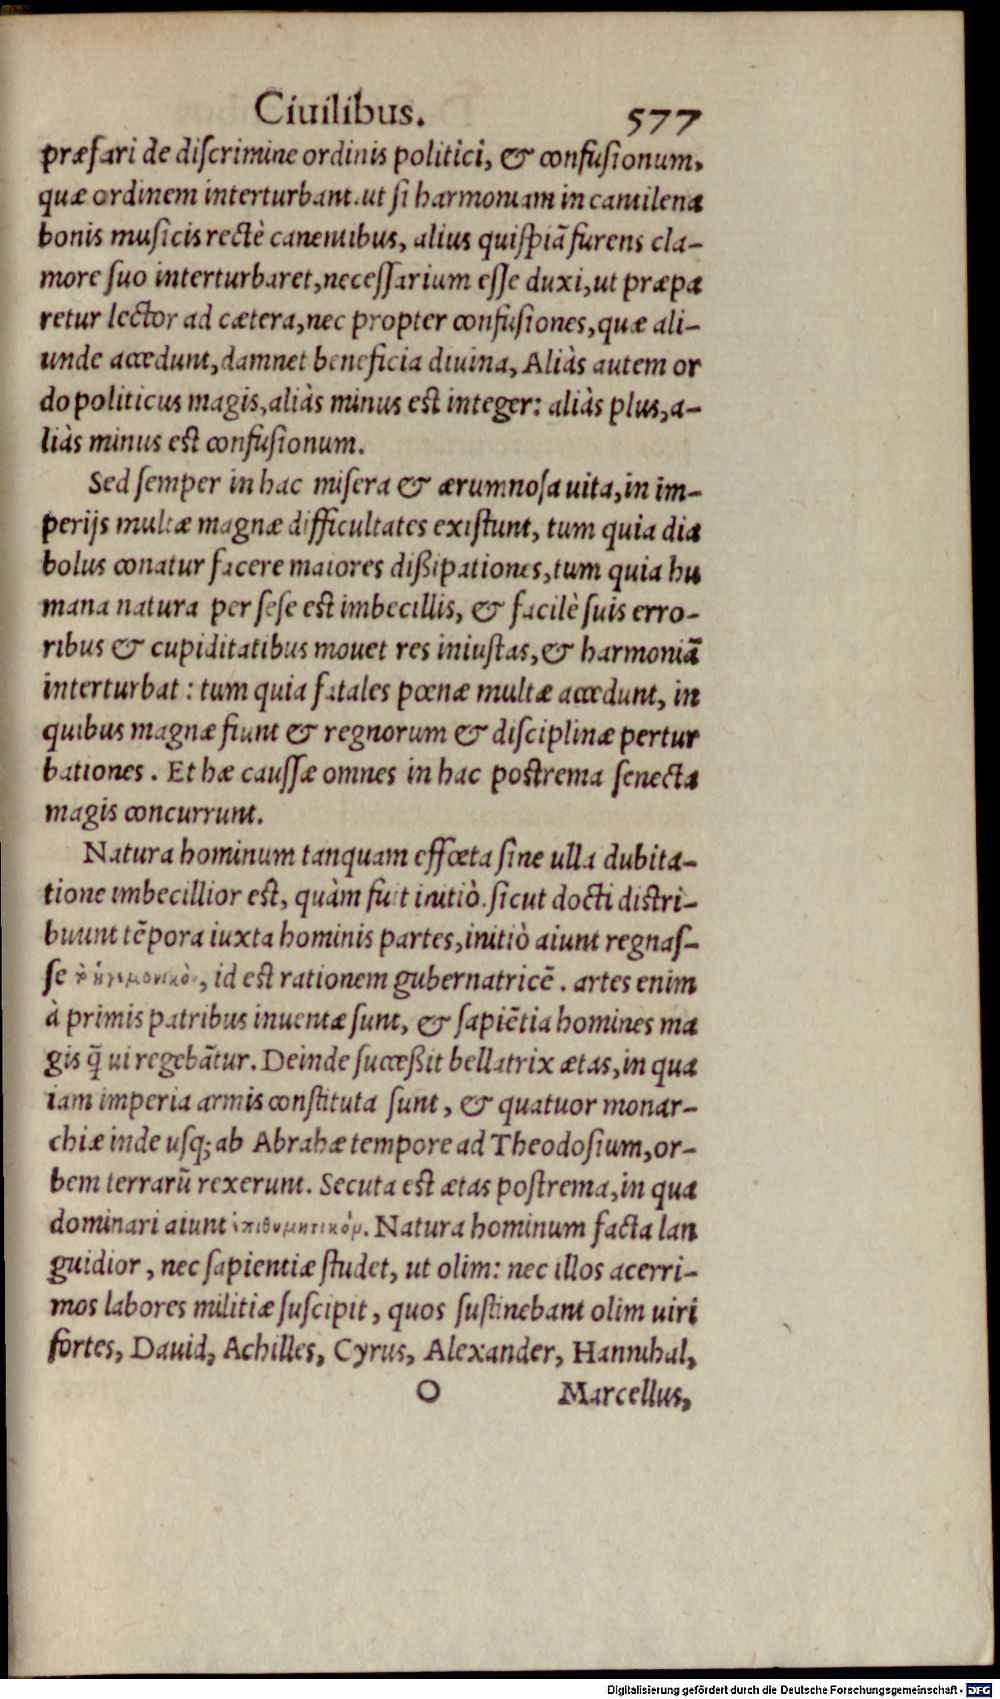 Ciuilibus. 577
præfari de diſcrimine ordinis politici, & confuſionum,
quæ ordinem interturbant. ut ſi harmoniam in cantilena
bonis muſicis rectè canentibus, alius quiſpiã furens cla-
more ſuo interturbaret, neceſſarium eſſe duxi, ut præpa
retur lector ad cætera, nec propter confuſiones, quæ ali-
unde accedunt, damnet beneficia diuina, Aliàs autem or
do politicus magis, aliàs minus est integer: aliàs plus, a-
liàs minus est confuſionum.
Sed ſemper in hac miſera & ærumnoſa uita, in im-
perijs multæ magnæ difficultates exiſtunt, tum quia dia
bolus conatur facere maiores dißipationes, tum quia hu
mana natura per ſeſe est imbecillis, & facilè ſuis erro-
ribus & cupiditatibus mouet res iniuſtas, & harmoniã
interturbat: tum quia fatales pœnæ multæ accedunt, in
quibus magnæ fiunt & regnorum & diſciplinæ pertur
bationes. Et hæ cauſſæ omnes in hac postrema ſenecta
magis concurrunt.
Natura hominum tanquam effœta ſine ulla dubita-
tione imbecillior est, quàm fuit initiò. ſicut docti distri-
buunt tẽpora iuxta hominis partes, initiò aiunt regnaſ-
ſe τὸ ἡγεμονικὸν, id est rationem gubernatricẽ. artes enim
à primis patribus inuentæ ſunt, & ſapiẽtia homines ma
gis q̃ ui regebãtur. Deinde ſucceßit bellatrix ætas, in qua
iam imperia armis conſtituta ſunt, & quatuor monar-
chiæ inde uſq; ab Abrahæ tempore ad Theodoſium, or-
bem terrarũ rexerunt. Secuta est ætas poſtrema, in qua
dominari aiunt ἐπιθυμητικόμ. Natura hominum facta lan
guidior, nec ſapientiæ ſtudet, ut olim: nec illos acerri-
mos labores militiæ ſuſcipit, quos ſuſtinebant olim uiri
fortes, Dauid, Achilles, Cyrus, Alexander, Hannibal,
O Marcellus,
Digitalisierung gefördert durch die Deutsche Forschungsgemeinschaft - DFG